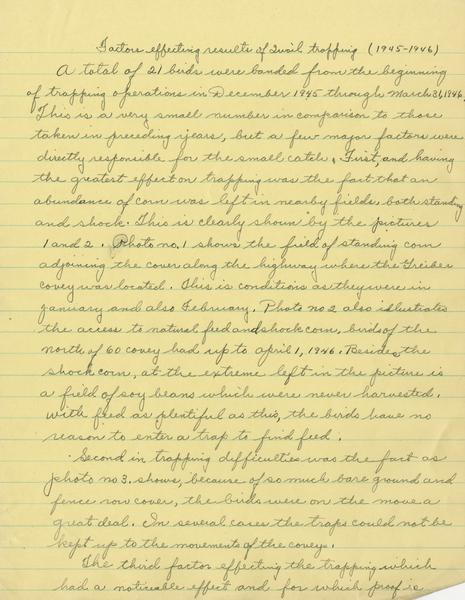 Factors effecting results of Quail trapping (1945-1946)
A total of 21 birds were banded from the beginning
of trapping operations in December 1945 through March 31, 1946.
This is a very small number in comparison to those
taken in preceding years, but a few major factors were
directly responsible for the small catch. First, and having
the greatest effect on trapping was the fact that an
abundance of corn was left in nearby fields both standing
and shock. This is clearly shown by the pictures
1 and 2. Photo no. 1 shows the field of standing corn
adjoining the cover along the highway where the Greiber
covey was located. This is conditions as they were in
january and also February. Photo no 2 also illustrates
the access to natural feed and shock corn, birds of the
north of 60 covey had up to april 1, 1946. Besides the
shock corn, at the extreme left in the picture is
a field of soy beans which were never harvested.
with feed as plentiful as this, the birds have no
reason to enter a trap to find feed.
Second in trapping difficulties was the fact as
photo no 3. shows, because of so much bare ground and
fence row cover, the birds were on the move a
great deal. In several cases the traps could not be
kept up to the movements of the covey.
The third factor effecting the trapping which
had a noticable effect and for which proof is